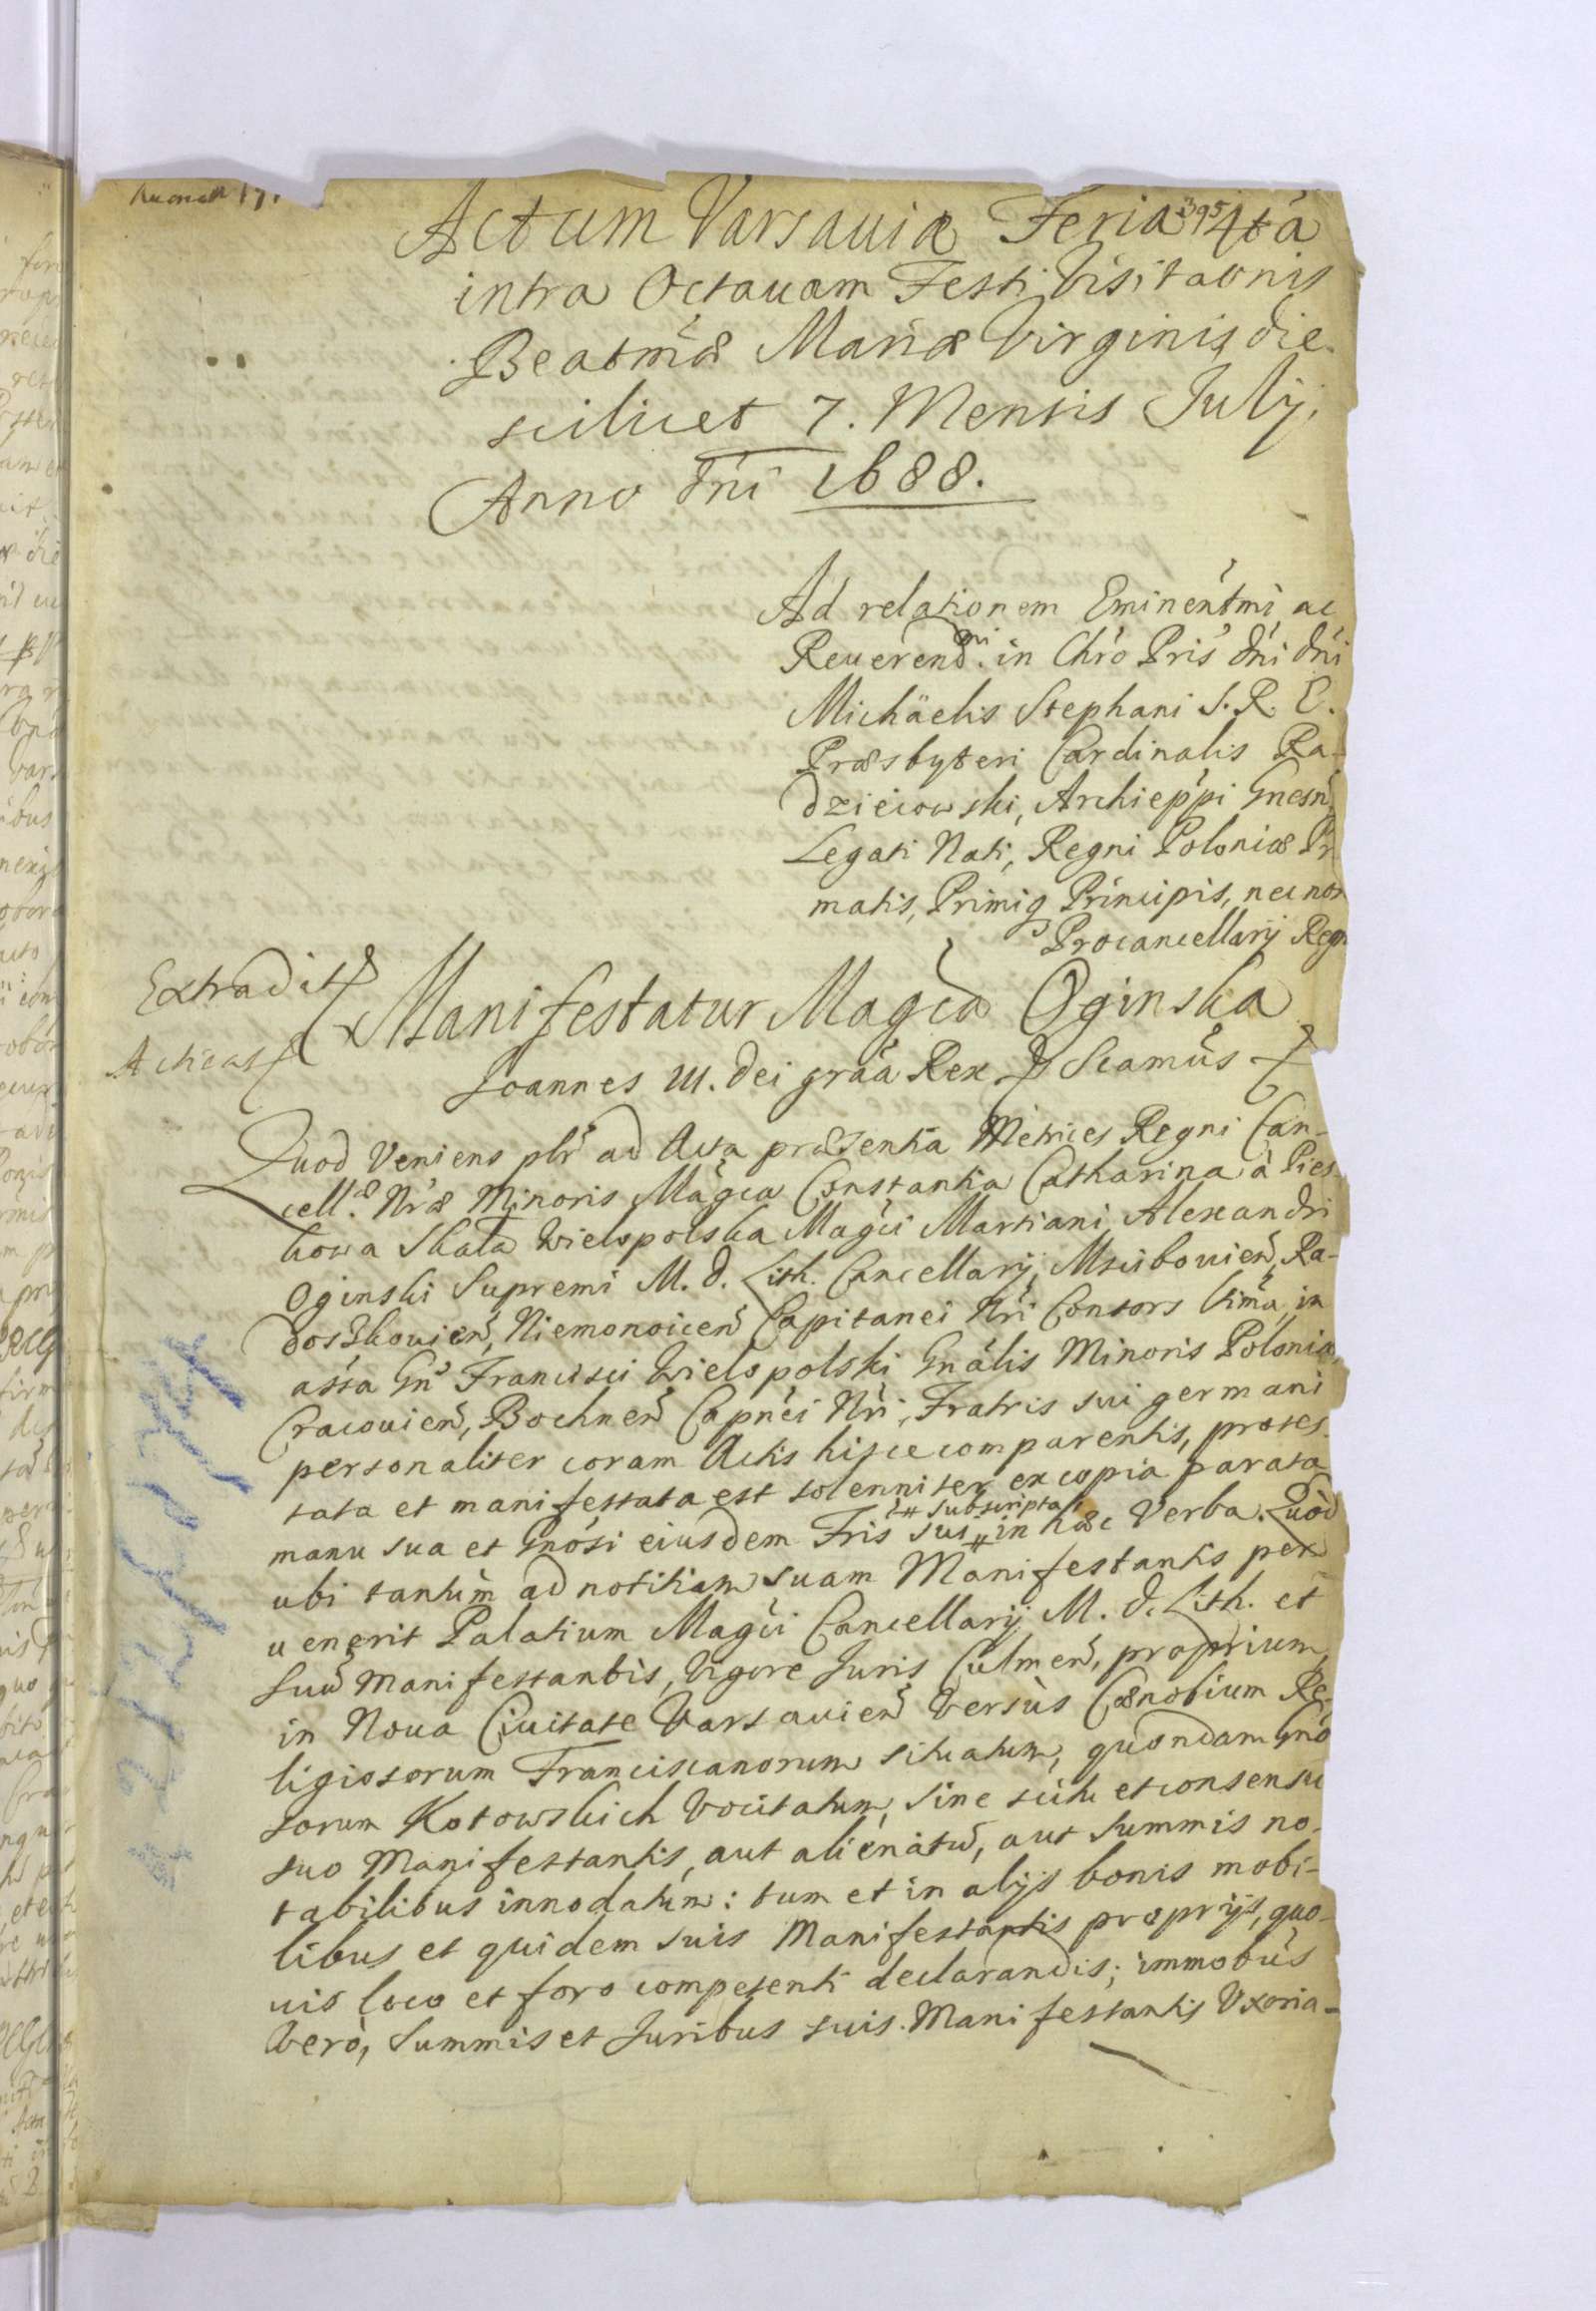 395
Actum Varsauiæ Feria 4tá
intra Octauam Festi Visitaonis
Beatmæ Mariæ Virginis die
scilicet 7. Mensis Julij,
Anno Dni 1688.
Ad relationem Eminentmi ac
Reuerendmi. in Chro Pris Dni Dni
Michäelis Stephani S. R. E.
Præsbyteri Cardinalis Ra-
dzieiowski, Archieppi Gnesn,
Legati Nati, Regni Poloniæ Pr
matis, Primiq Principis, necnon
Procancellarij Regn
Extradit
Manifestatur Magca Oginska
Joannes III. Dei graa Rex Scamus
Quod Veniens plr ad Acta præsentia Metrices Regni Can-
cell. Nræ Minoris Magca Constantia Catharina à Pies-
kowa Skała Wielopolska Magci Martiani Alexandri
Oginski Supremi M. D. Lith. Cancellarij, Mscibouien, Ra-
doszkouien, Niemonoicen Capitanei Nri Consors ltima, in
assa Gn Francisci Wielopolski Gnalis Minoris Poloniæ,
Cracouien, Bochnen Capnei Nri, Fratris sui germani
personaliter coram Actis hisce comparentis, protes-
tata et manifestata est solenniter ex copia parata
manu sua et Gnosi eiusdem Fris sui # subscripta # in hæc Verba. Quòd
ubi tantùm ad notitiam suam Manifestantis per
uenerit Palatium Magci Cancellarij M. D. Lith. et
suu Manifestantis, Vigore Juris Culmen, proprium,
in Noua Ciuitate Varsauien Versùs Cænobium Re-
ligiosorum Franciscanorum situatum, quondam Gno
sorum Kotowskich Vocitatum, Sine scitu et consensu
suo Manifestantis, aut alienatu, aut Summis no-
tabilibus innodatum: tum et in alijs bonis mobi-
libus et quidem suis Manifestantis proprijs, quo-
uis loco et foro competenti declarandis; immobus
Verò, Summis et Juribus suis. Manifestantis Uxoria-